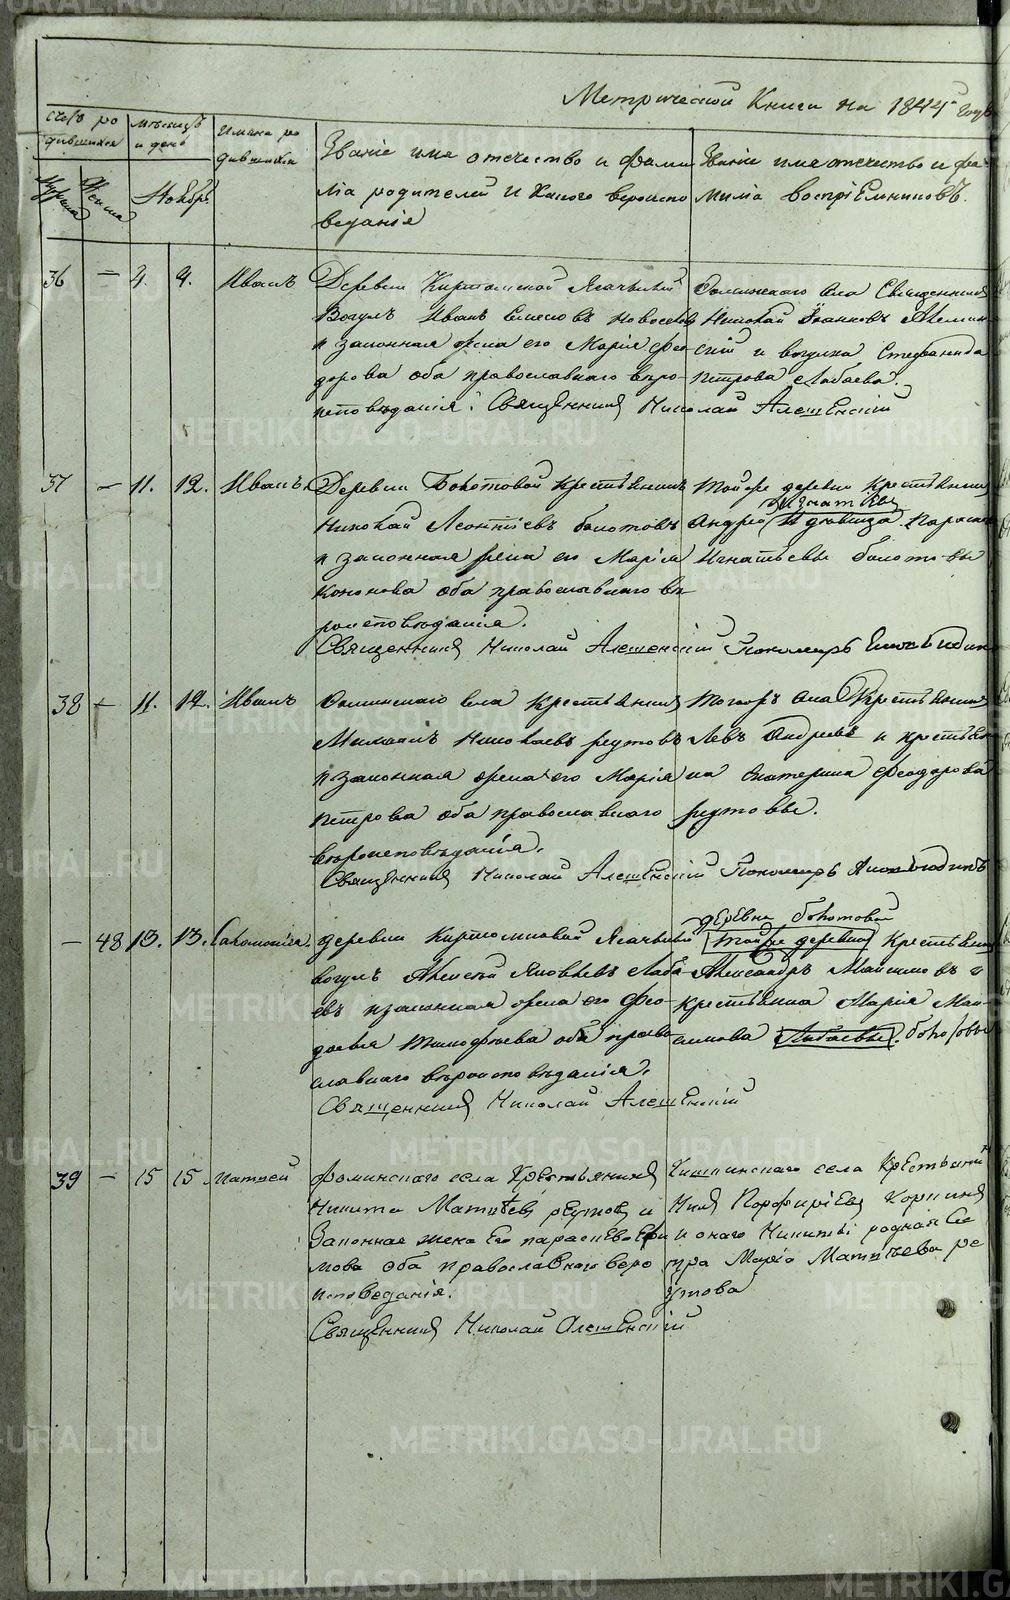 Метрической Книги на 1844 годъ
счетъ ро
дившихся
Мужеска
Женска
мѣсяцъ
и день
Ноябрь
Имяна ро
дившихся
Званіе имя отечество и фами
лія родителей и какого вероиспо
веданія
Званіе имя отечество и фа-
милія воспріемниковъ.
36 — 4. 4. Иванъ
Деревни Ясачный
Вогулъ Иванъ Новоселовъ
и законная жена его Марія Фео
дорова оба православнаго веро-
исповѣданія. Священник Николай Алешенскій
Фоминскаго села Священник
Николай Алешен
скій и вогулка Стефанида
Петрова Лабаева.
37 — 11. 12. Иванъ
Деревни Болотовой крестьянинъ
Николай Леонтіевъ болотовъ
и законная жена его Марія
Кононова оба православнаго вѣ
роисповѣданія.
Священник Николай Алешенскій Пономарь
Той же деревни крестьянин
Игнатіевъ
Андрей и дѣвица Параск
Игнатьевы болотовы
38 — 11. 12. Иванъ
Фоминскаго села Крестьянин
Михаилъ Николаевъ реутовъ
и законная жена его Марія
Петрова оба православнаго
вѣроисповѣданія.
Священник Николай Алешенскій Пономарь
Тогожъ села Крестьянин
Левъ Андреевъ и крестьян
ка Екатерина Феодорова
реутовы.
— 48 13. 13. Саломонія.
деревни Ясачный
вогулъ Алексѣй Яковлевъ Лаба
евъ и законная жена его Фео
досья Тимофѣева оба право
славнаго вѣроисповѣданія.
Священник Николай Алешенскій
деревни болотовой
той же деревни Крестьянин
Александръ Максимовъ и
крестьянка Марія Мак-
симова Лабаевы. болотовы
39 — 15 15 Матвей
Фоминскаго села Крестьянин
Никита Матвѣев реутов и
Законная жена Его параскева Ефи
мова оба православнаго веро
исповеданія.
Священник Николай Алешенскій
села Крестьянин
Нил Порфиріев Корнин
и онаго Никиты родная Се
тра Марія Матвѣева ре
утова
METRIKI.GASO-URAL.RU